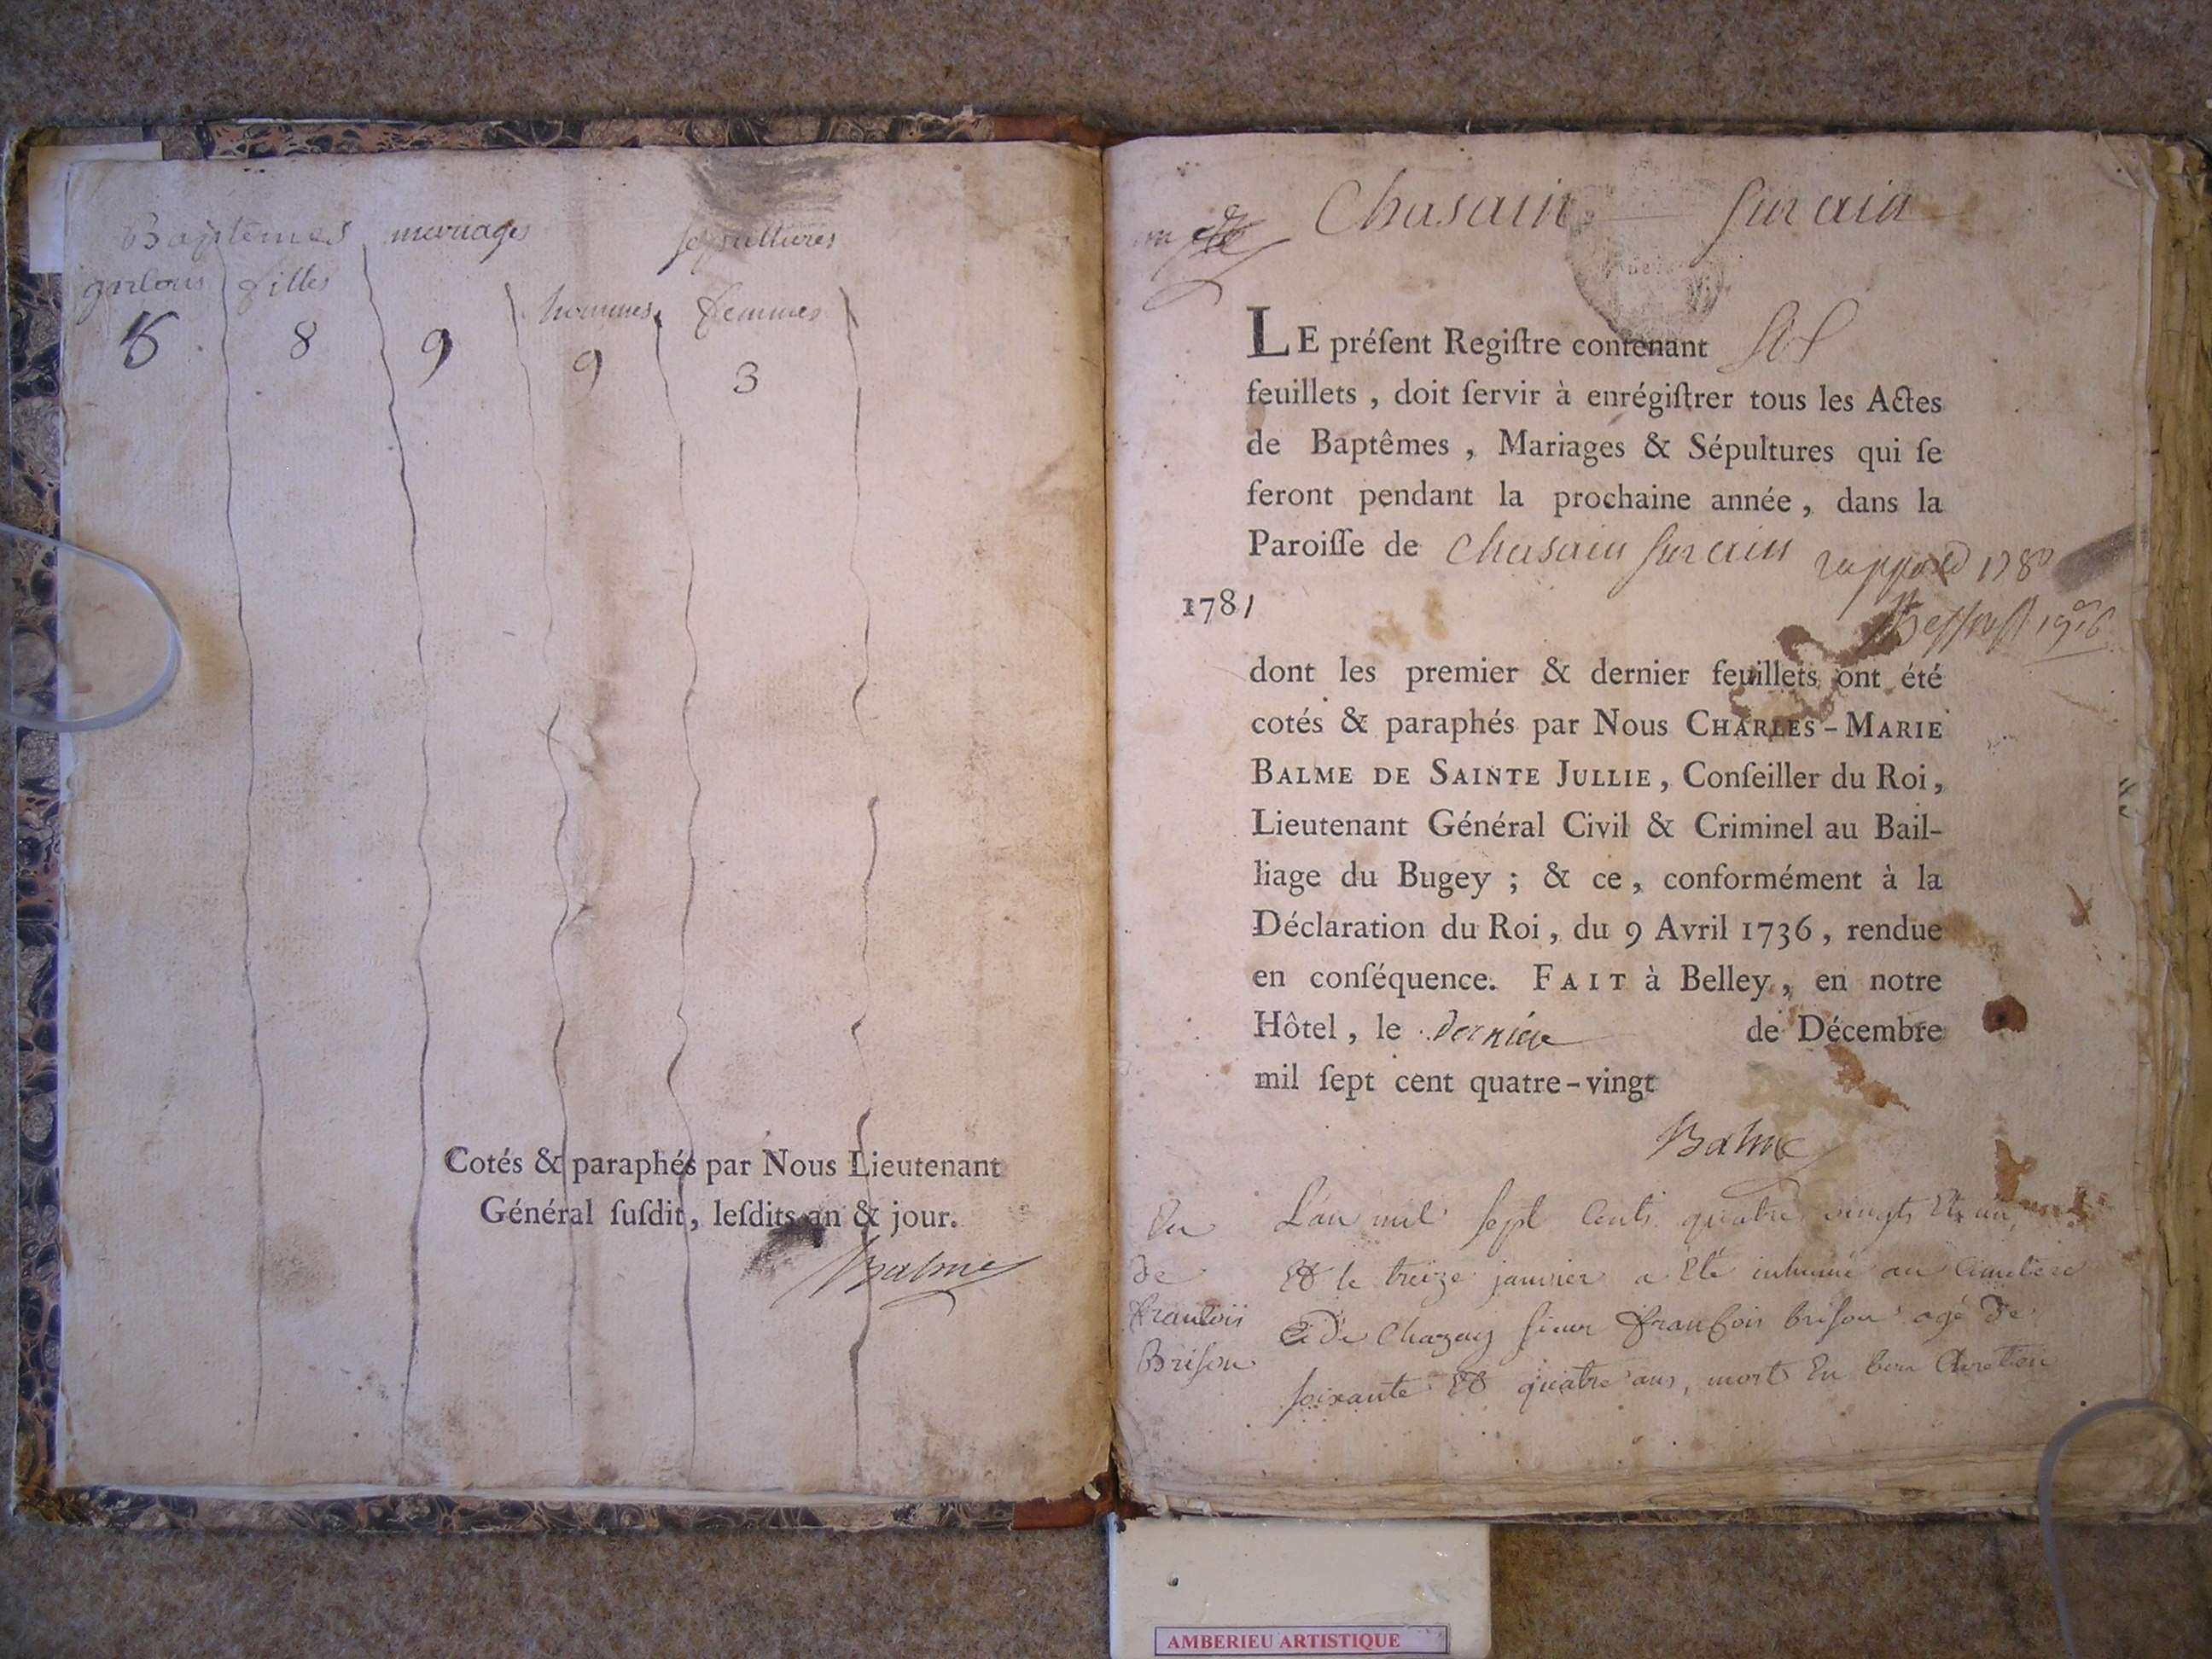 Baptêmes mariages sepultures
garsons filles
hommes femmes
8 9 9 3
Cotés & paraphés par Nous Lieutenant
Général ſuſdit, leſdits an & jour.
Balme
Chasain Sur ain
LE préſent Regiſtre contenant
feuillets, doit ſervir à enrégiſtrer tous les Actes
de Baptêmes, Mariages & Sépultures qui ſe
feront pendant la prochaine année, dans la
Paroiſſe de Chasain Sur ain
1781
dont les premier & dernier feuillets ont été
cotés & paraphés par Nous CHARLES-MARIE
BALME DE SAINTE JULLIE, Conſeiller du Roi,
Lieutenant Général Civil & Criminel au Bail-
liage du Bugey ; & ce, conformément à la
Déclaration du Roi, du 9 Avril 1736, rendue
en conſéquence. FAIT à Belley, en notre
Hôtel, le dernier de Décembre
mil ſept cent quatre-vingt
Balme
L'an mil sept cents quatre vingts et un,
et le treize janvier a été inhumé au cimetiere
de Chazey sieur francois brison agé de
soixante et quatre ans, mort en bon Chretien
de
francois
Brison
AMBERIEU ARTISTIQUE